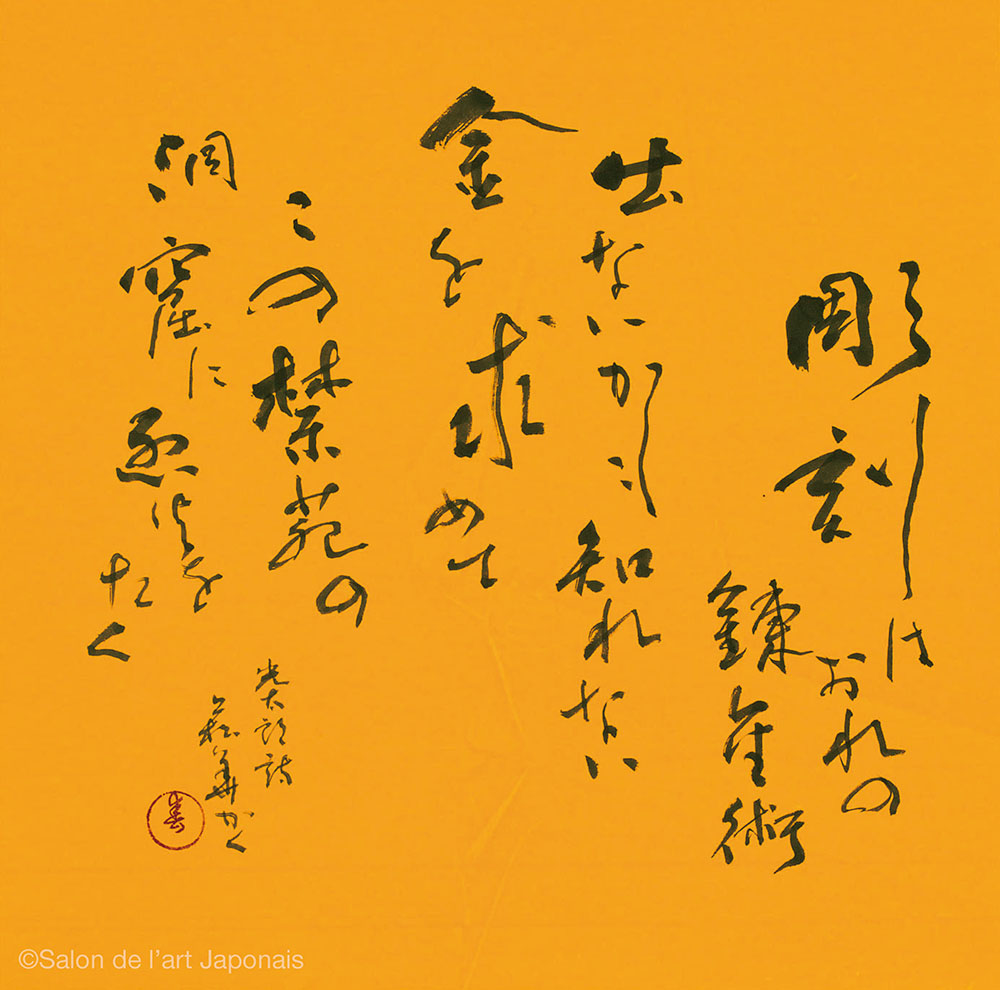 彫刻は
おれの
錬金術
出ないかも
知れない
金を求めて
この禁苑の
洞窟に
烈火を
たく
光太郎詩
©Salon de l'art Japonais